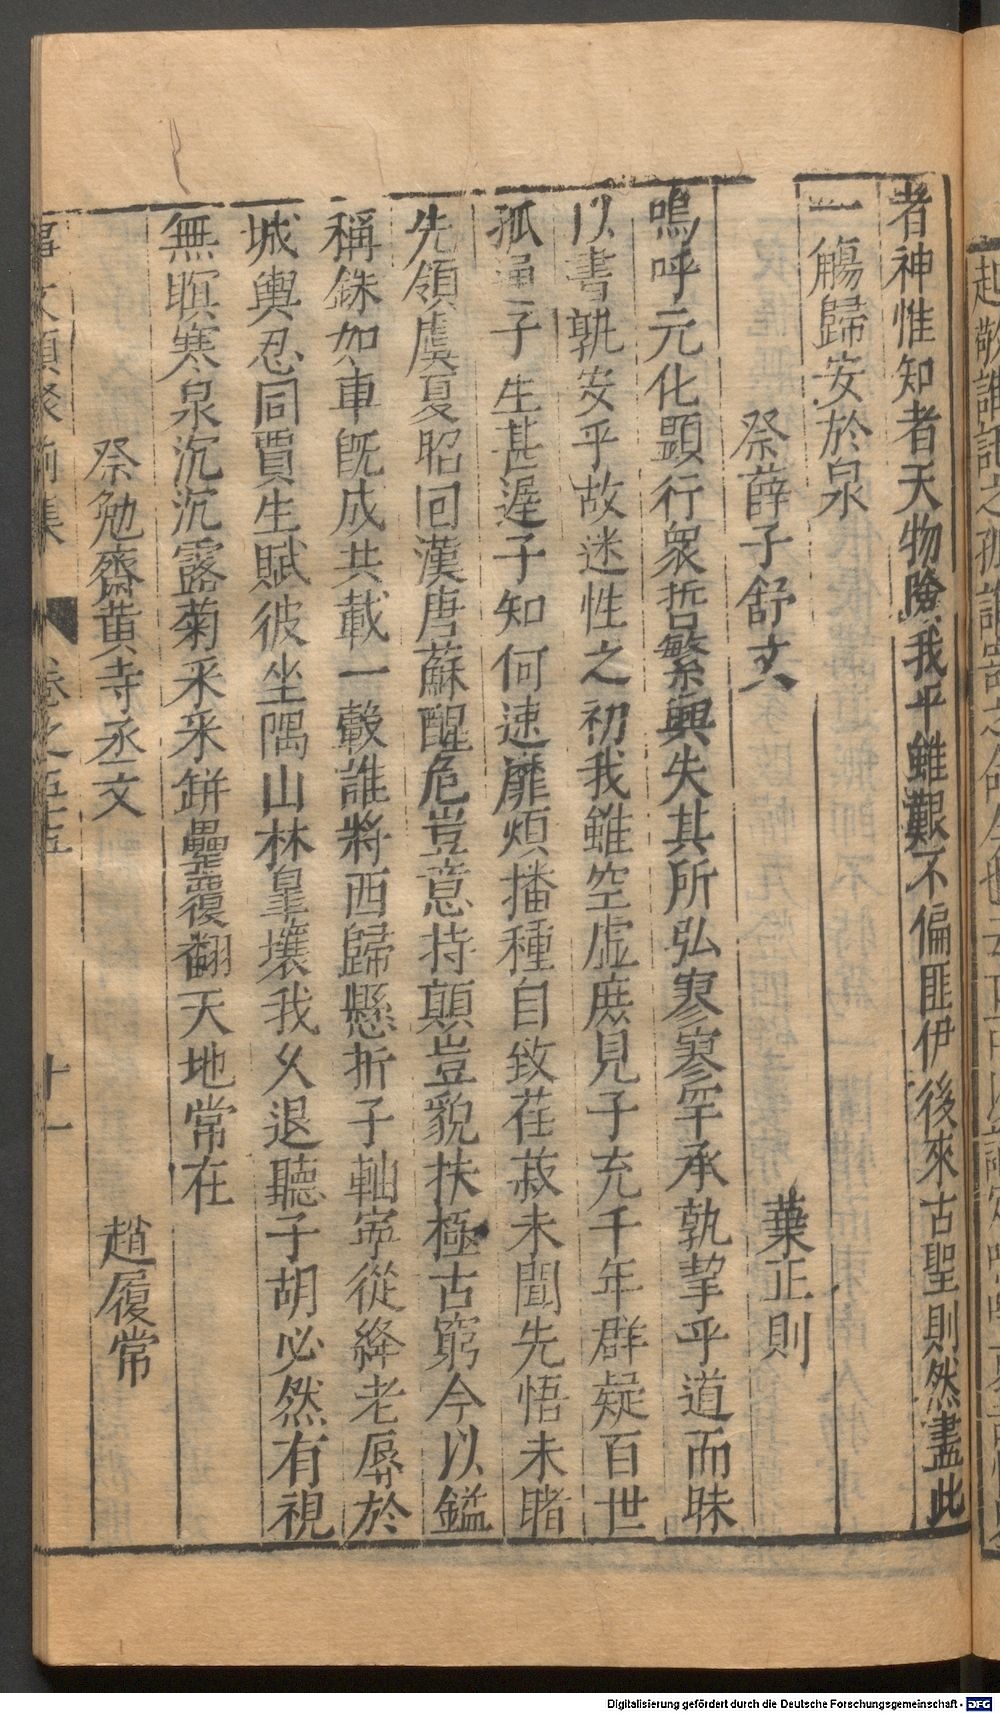 者神惟知者天物險我平雖艱不偏匪伊後來古聖則然盡此
一觴歸安於泉
祭薛子舒文
葉正則
嗚呼元化顯行衆哲繁興失其所弘寥寥罕承孰挈乎道而昧
以書孰安乎故迷性之初我雖空虛庶見子充千年群疑百世
孤通子生甚遲子知何速靡煩播種自致荏菽未聞先悟未睹
先領虞夏昭回漢唐蘇醒危豈意持顛豈貌扶極古窮今以鎰
稱銖如車旣成共載一轂誰將西歸懸折子軸寧從絳老辱於
城輿忍同賈生賦彼坐隅山林臯壤我久退聽子胡必然有視
無瞑寒泉沉沉露菊采采缾罍覆翻天地常在
祭勉齋黃寺丞文
趙履常
事文類聚前集 卷之五十五 十一
Digitalisierung gefördert durch die Deutsche Forschungsgemeinschaft - DFG